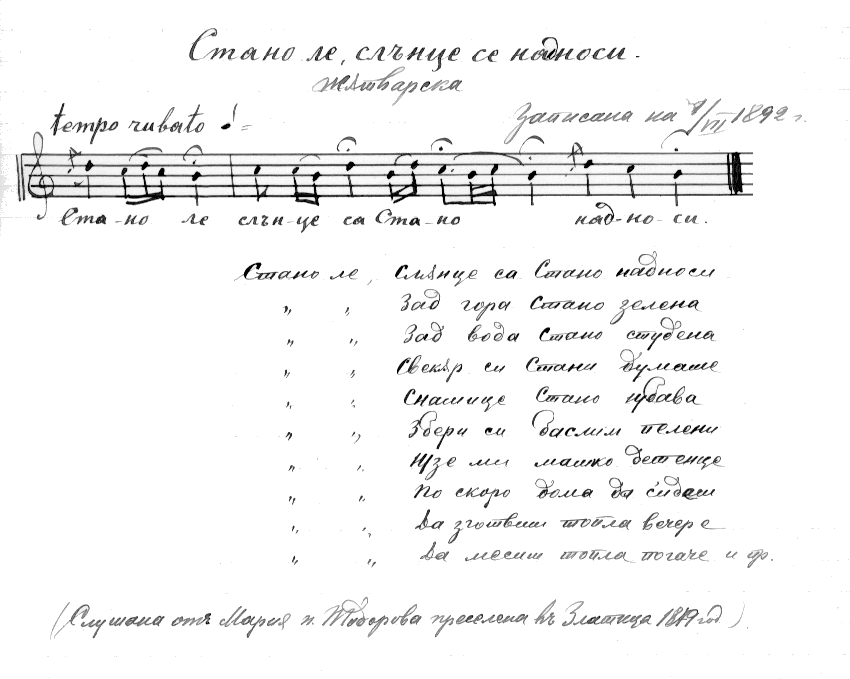 Стано ле, слънце се надноси.
Жѫтварска
tempo rubato ♩=
Записана на 7/VII 1892 г.
Ста-но ле слън-це са Ста-но над-но-си.
Стано ле, Слѫнце са Стано надноси
„ „ Зад гора Стано зелена
„ „ Зад вода Стано студена
„ „ Свекѫр си Стани думаше
„ „ Снашице Стано хубава
„ „ Збери си баслим пелени
„ „ Изе ми машко детенце
„ „ По скоро дома да си́деш
„ „ Да зготвиш топла вечере
„ „ Да месиш топла погаче и пр.
(Слушана отъ Мария п. Тодорова преселена въ Златица год)